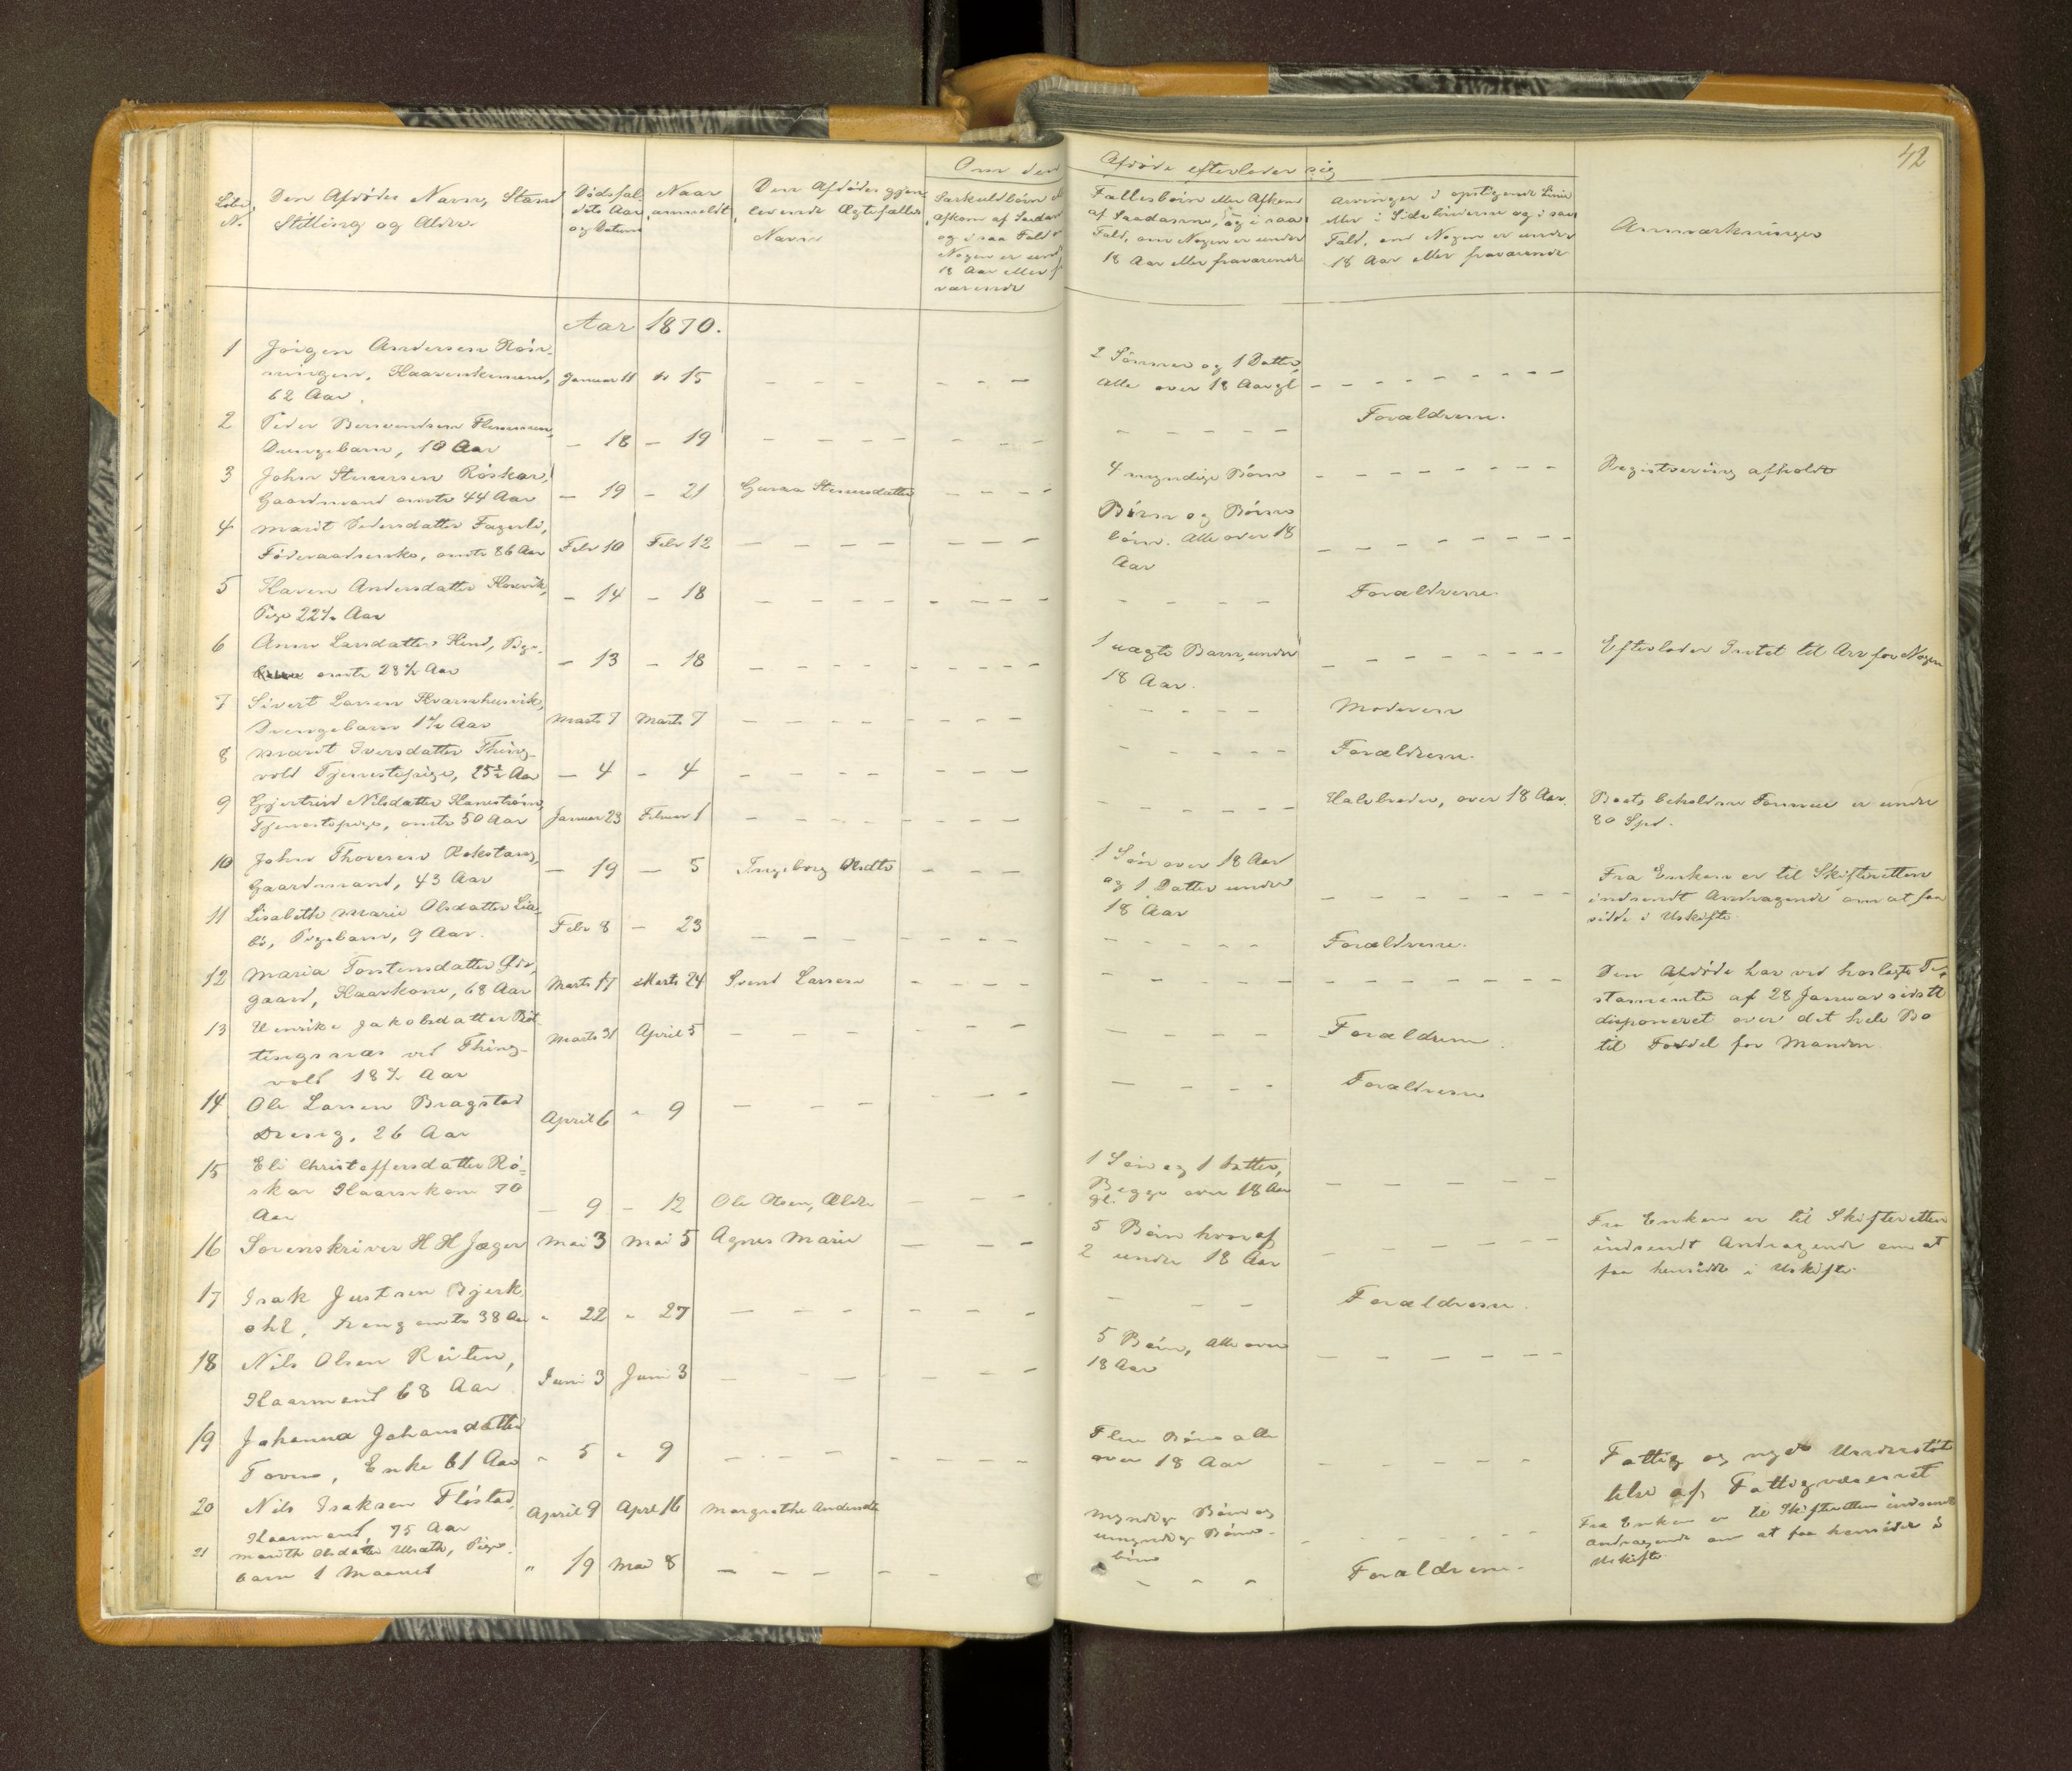 42
Om den Afdøde efterlader sig
Løbe N.
Den Afdødes Navn, Stand
Stilling og Alder.
Dødsfal-
dets Aar
og Datum
Naar
anmeldt
Den Afdødes gjen-
levende Ægtefælles
Navn
Særkuldbörn
Afkom af Saadan
og i saa Fald
Nogen er und
18 Aar eller f
værende
Fællesbörn eller Afkom
af Saadanne, og i saa
Fald, om Nogen er under
18 Aar eller fraværende
Arvinger i opstigende Linie
eller i Sidelinierne og i saa
Fald, om Nogen er under
18 Aar eller fraværende
Anmærkninger
Aar 1870.
1 Jörgen Andersen Rön-
ningen, Kaarenkemand, Januar 11 15 – – – –
62 Aar.
2 Sönner og 1 Datter,
alle over 18 Aar gl – – – –
2 Peder Bersvendsen
Drengebarn, 10 Aar – 18 – 19 – – – – Forældrene.
3 John Stenersen Röskar,
Gaardmand omtr 44 Aar – 19 – 21 Guraa Stenersdatter – – – 4 myndige Börn – – – – Registrering afholdt
4 Marit Pedersdatter Fagerli,
Föderaadsenke, omtr 86 Aar Febr 10 Febr 12 – – – –
Börn og Börne
börn. Alle over 18
Aar – – – –
5 Karen Andersdatter
Pige 22½ Aar – 14 – 18 – – – – Forældrene.
6 Anne Larsdatter Hend, Pige.
omtr 28½ Aar – 13 – 18 – – – –
1 uægte Barn, under
18 Aar. – – – – Efterlader Intet til Arv for Nogen
7 Sivert Larsen Kvarnhusvik,
Drengebarn 1½ Aar Marts 7 Marts 7 – – – – Moderen
8 Marit Iversdatter Thing-
vold Tjenestepige, 25½ Aar – 4 – 4 – – – – Forældrene.
9 Gjertrud Nilsdatter Kanestrøm,
Tjenestepige, omtr 50 Aar Januar 23 Februar 1 – – – – Halvbroder, over 18 Aar.
Boets beholdne Formue er under
80 Spd.
10 John Thoresen Rokstang,
Gaardmand, 43 Aar – 19 – 5 Ingeborg Olsdtr – – –
1 Sön over 18 Aar
og 1 Datter under
18 Aar – – – –
Fra Enken er til Skifteretten
indsendt Andragende om at faa
sidde i Uskifte.
11 Lisabeth Marie Olsdatter Lia-
bö, Pigebarn, 9 Aar. Febr 8 – 23 – – – – Forældrene.
12 Maria Torstensdatter Öde-
gaard, Kaarkone, 68 Aar Marts 17 Marts 24 Svend Larsen – – – –
Den Afdöde har ved hoslagte Te-
stamente af 28 Januar sidstl
disponeret over det hele Bo
til Fordel for Manden.
13 Henrike Jakobsdatter Böt
tingsnæs ved Thing-
vold 18½ Aar Marts 31 April 5 – – – – Forældrene.
14 Ole Larsen Bragstad
Dreng, 26 Aar April 6 " 9 – – – – Forældrene
15 Eli Christoffersdatter Rö-
skar Kaarkone 70
Aar – 9 – 12 Ole Olsen, Ældre – – –
1 Sön og 1 Datter,
Begge over 18 Aar
gl. – – – –
16 Sorenskriver H H Jæger Mai 3 Mai 5 Agnes Marie – – –
5 Börn hvoraf
2 under 18 Aar – – – –
Fra Enken er til Skifteretten
indsendt Andragende om at
faa hensidde i Uskifte.
17 Isak Justsen Bjerk-
ohl, Dreng omtr 38 Aar " 22 " 27 – – – – Forældrene.
18 Nils Olsen Reiten,
Kaarmand 68 Aar Juni 3 Juni 3 – – – –
5 Börn, Alle over
18 Aar – – – –
19 Johanna Johansdatter
Torvu, Enke 61 Aar " 5 " 9 – – – –
Flere Börn alle
over 18 Aar – – – –
Fattig og nyd Understöt
telse af Fattigvæsenet
20 Nils Isaksen Flöstad,
Kaarmand, 75 Aar April 9 April 16 Margrethe Andersdtr
Myndige Börn og
umyndige Börne-
börn – – – –
Fra Enken er til Skifteretten indsendt
Andragende om at faa hensidde i
Uskifte.
21 Marith Olsdatter Ulsæth, Pige-
barn 1 Maaned " 19 Mai 8 – – – – Forældrene.